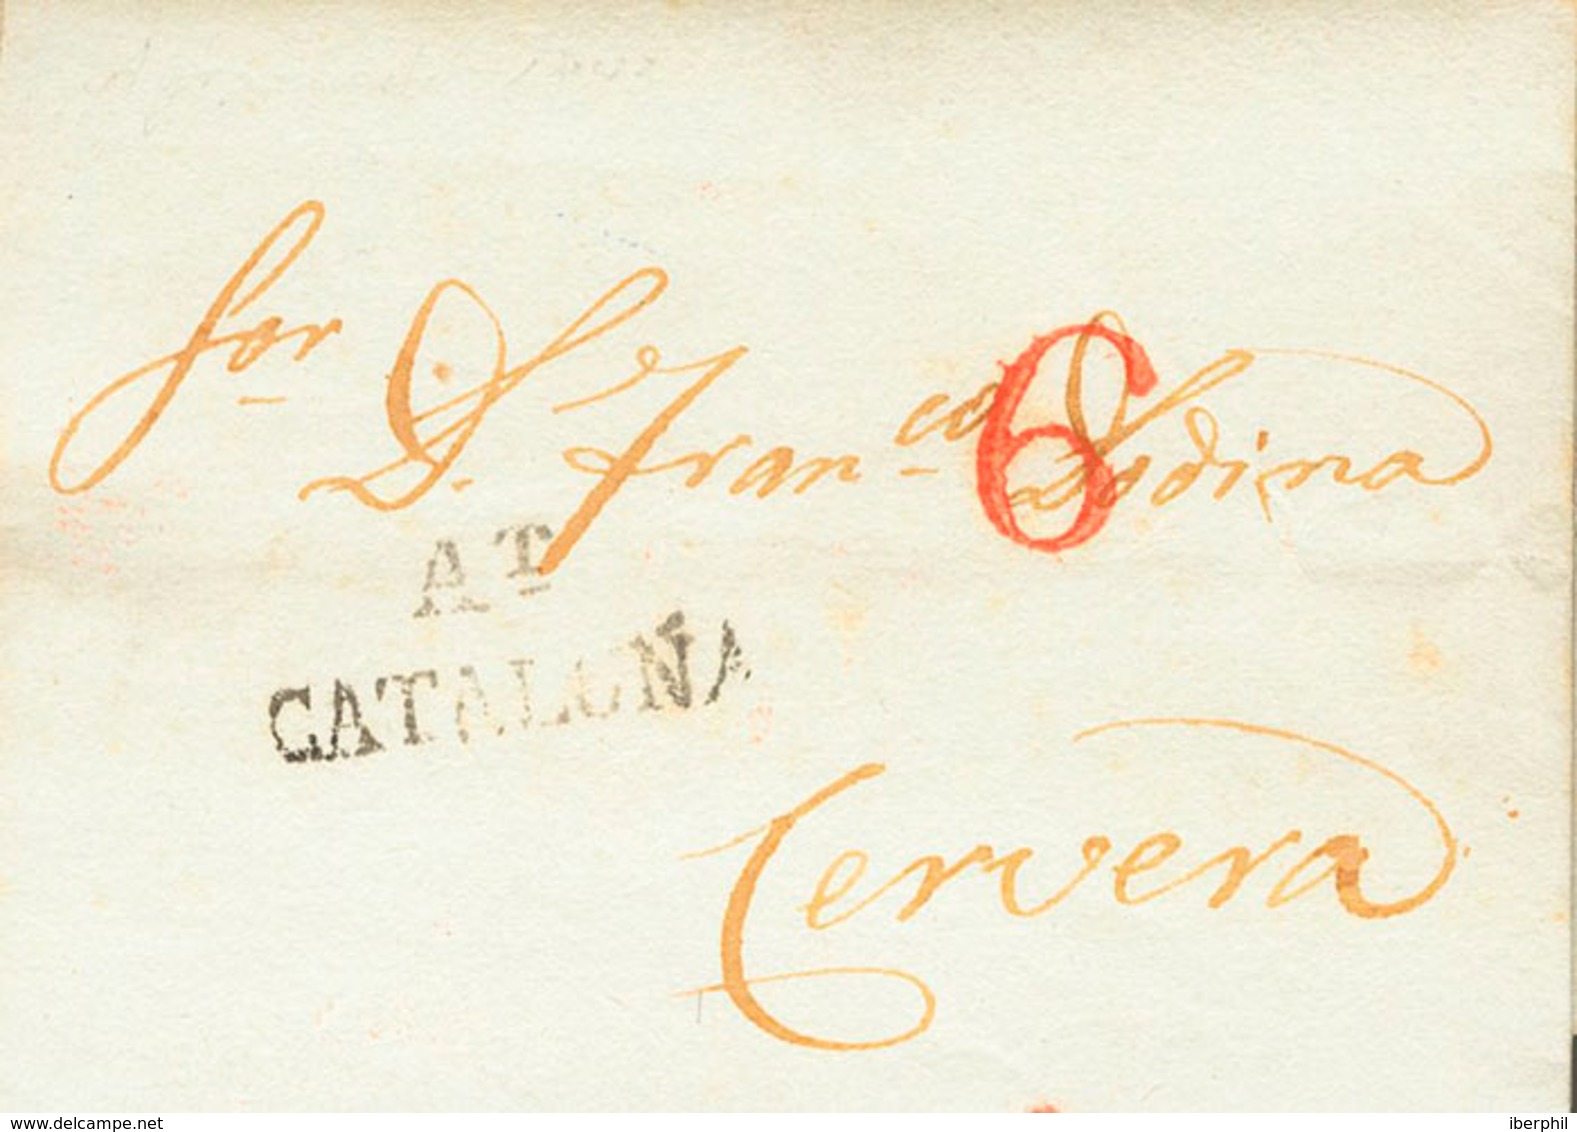 Sor D. Franco
6
AT
CATALUÑA
Cervera
delcampe.net
iberphil